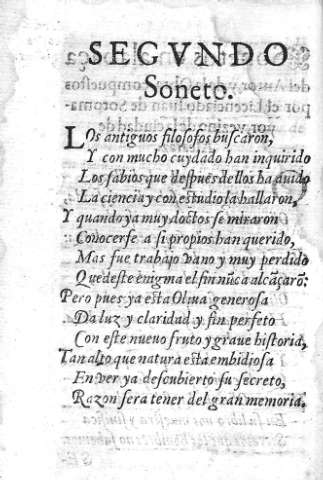 SEGVNDO
Soneto.
LOs antiguos filosofos buſcaron,
Y con mucho cuydado han inquirido
Los ſabios que deſpues dellos ha auido
La ciencia y con eſtudio la hallaron,
Y quando ya muy doctos ſe miraron
Conocerſe a ſi propios han querido,
Mas fue trabajo vano y muy perdido
Que deſte enigma el fin nũca alcãçarõ:
Pero pues ya eſta Oliua generoſa
Da luz y claridad y fin perfeto
Con eſte nueuo fruto y graue hiſtoria,
Tan alto que natura eſta embidioſa
En ver ya deſcubierto ſu ſecreto,
Razon ſera tener del gran memoria.